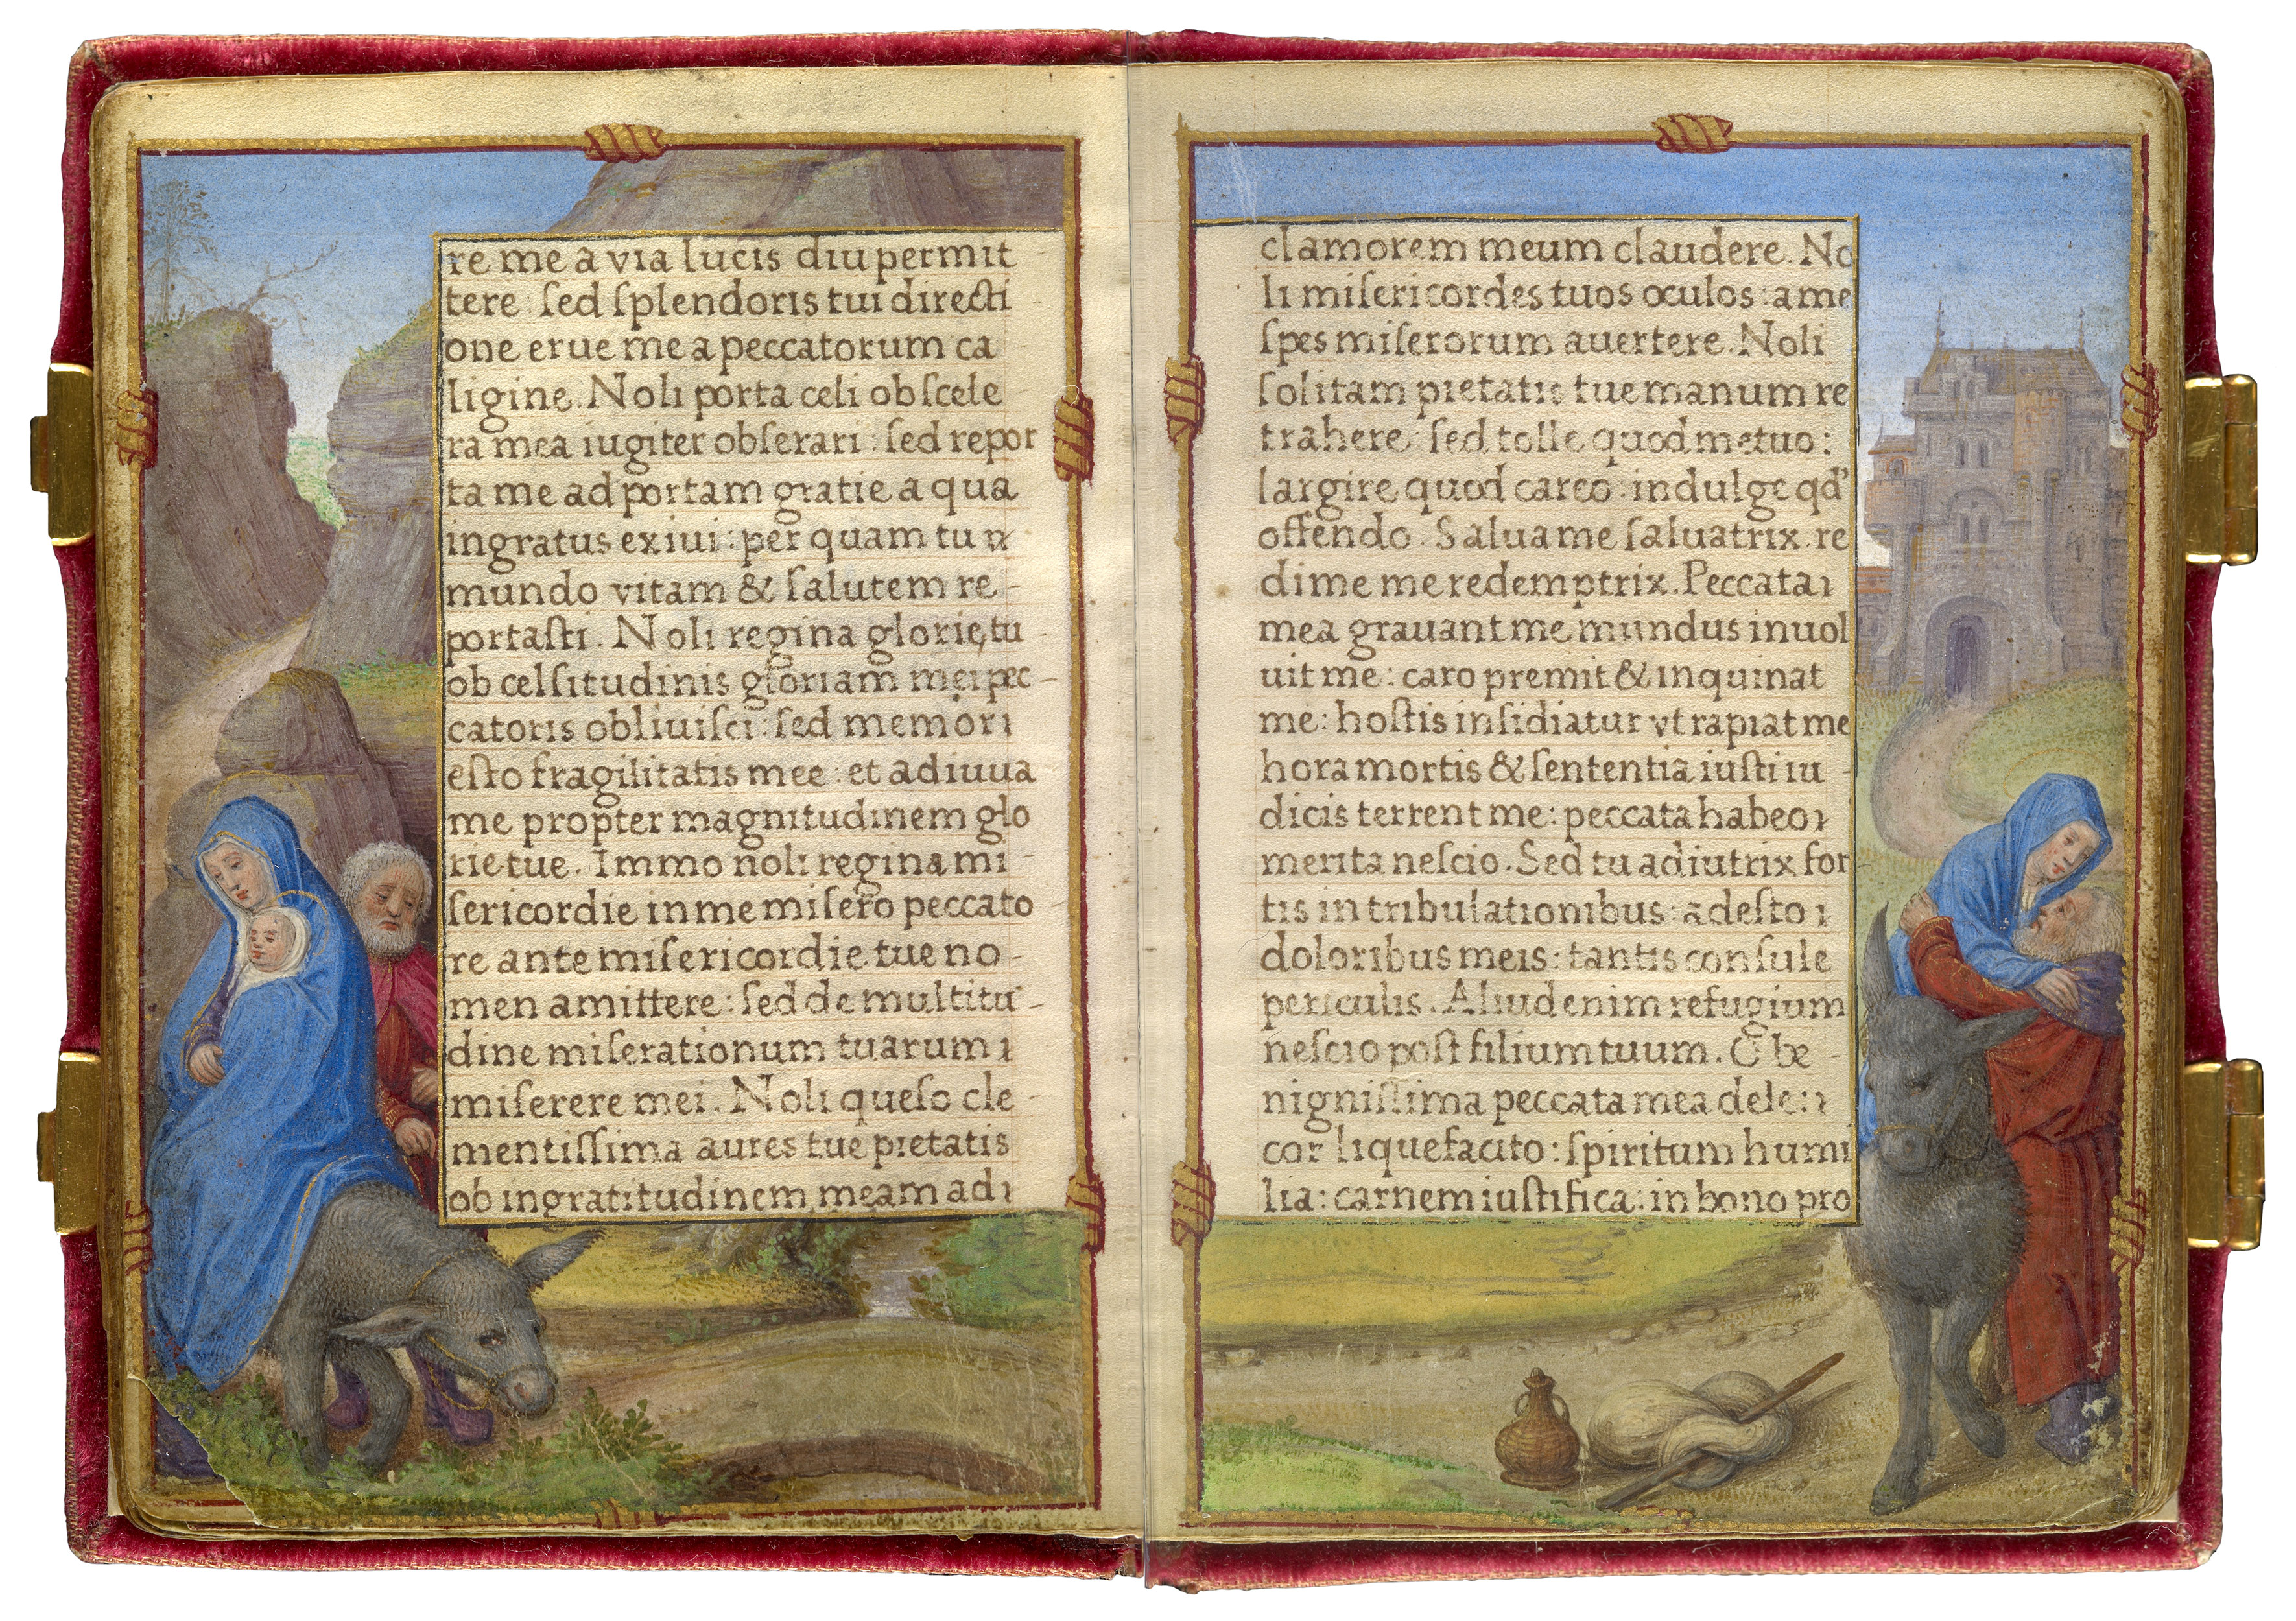 re me a via lucis diu permit
tere: ſed ſplendoris tui directi
one erue me a peccatorum ca
ligine. Noli porta celi ob ſcele
ra mea iugiter obſerari: ſed repor
ta me ad portam gratie a qua
ingratus exiui: per quam tu
mundo vitam & ſalutem re-
portaſti. Noli regina glorie, tu
ob celſitudinis gloriam mei pec-
catoris obliuiſci: ſed memor
eſto fragilitatis mee: et adiuua
me propter magnitudinem glo
rie tue. Immo noli regina mi-
ſericordie in me miſero peccato
re ante miſericordie tue no-
men amittere: ſed de multitu-
dine miſerationum tuarum
miſerere mei. Noli queſo cle-
mentiſſima aures tue pietatis
ob ingratitudinem meam ad
clamorem meum claudere. No
li miſericordes tuos oculos: a me
ſpes miſerorum auertere. Noli
ſolitam pietatis tue manum re
trahere: ſed tolle quod metuo:
largire quod careo: indulge qd'
offendo. Salua me ſaluatrix. re
dime me redemptrix. Peccata
mea grauant me mundus inuol
uit me: caro premit & inquinat
me: hoſtis inſidiatur vt rapiat me
hora mortis & ſententia iuſti iu-
dicis terrent me: peccata habeo
merita neſcio. Sed tu adiutrix for
tis in tribulationibus: adeſto
doloribus meis: tantis conſule
periculis. Aliud enim refugium
neſcio poſt filium tuum. O be-
nigniſſima peccata mea dele:
cor liquefacito: ſpiritum humi
lia: carnem iuſtifica: in bono pro